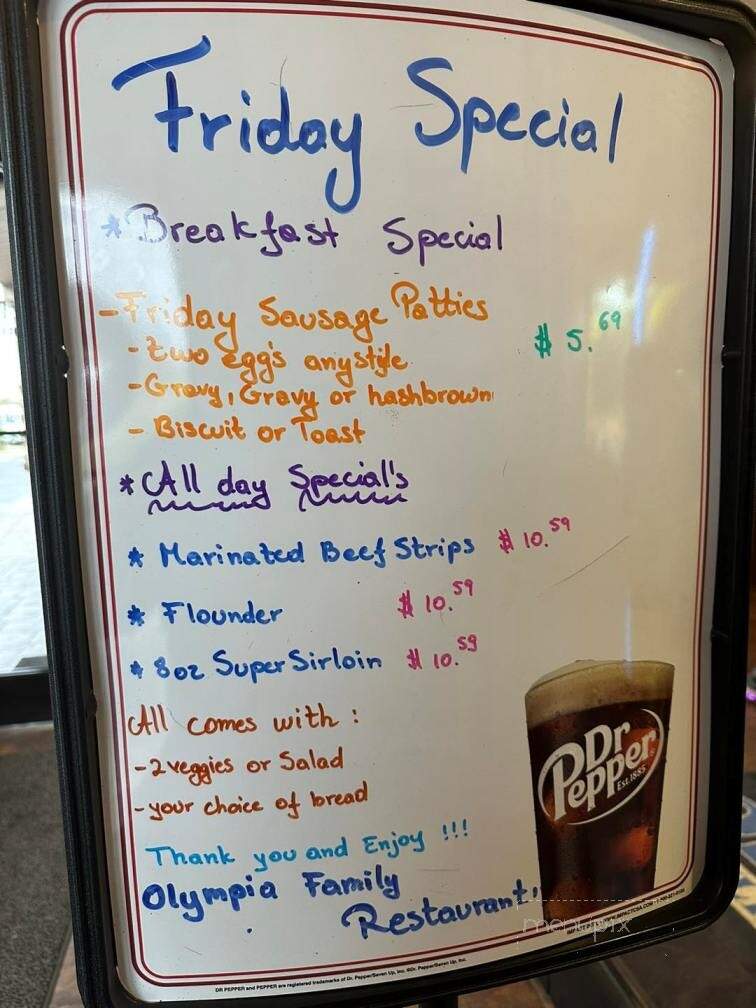 Friday Special
* Breakfast Special
- Friday Sausage Patties
- two egg's anystyle $ 5.69
- Gravy, Gravy or hashbrown
- Biscuit or Toast
* All day Special's
* Marinated Beef Strips $ 10.59
* Flounder $ 10.59
* 8oz Super Sirloin $ 10.59
All comes with :
- 2 veggies or Salad
- your choice of bread
Thank you and Enjoy !!!
Olympia Family
Restaurant
Dr Pepper
Est. 1885
menupix
DR PEPPER and PEPPER are registered trademarks of Dr. Pepper/Seven Up, Inc. ©Dr. Pepper/Seven Up, Inc.